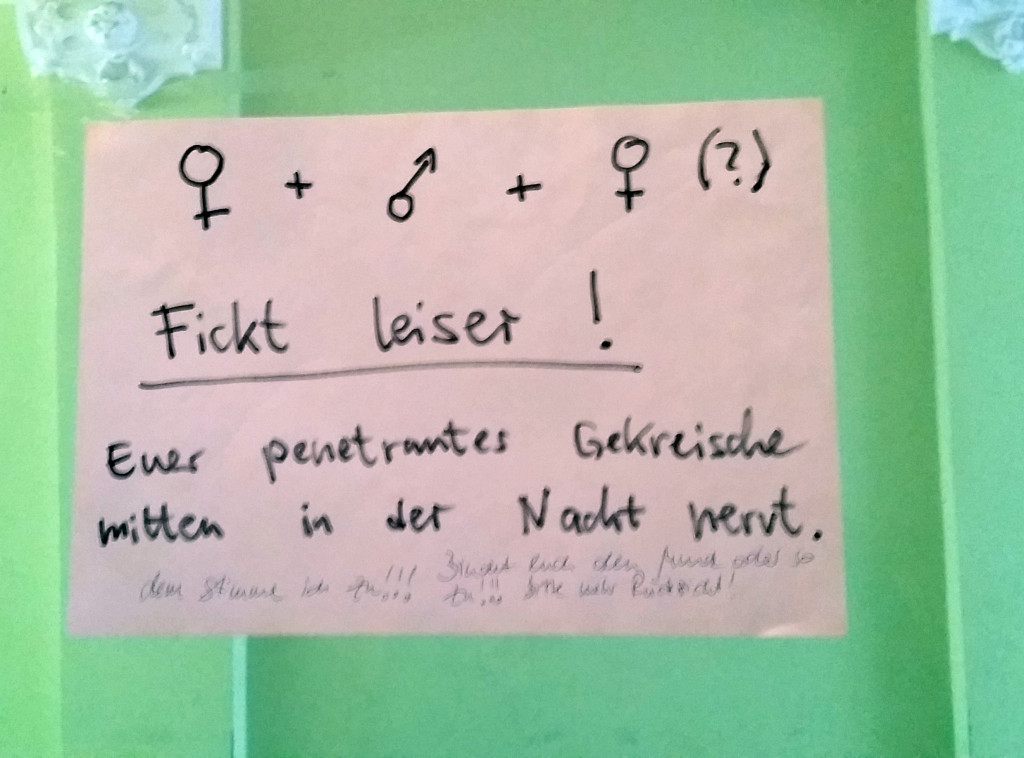 ♀ + ♂ + ♀ (?)
Fickt leiser !
Euer penetrantes Gekreische
mitten in der Nacht nervt.
dem stimme ich zu!!! Bindet euch den Mund oder so
zu!!! bitte mehr Rücksicht!